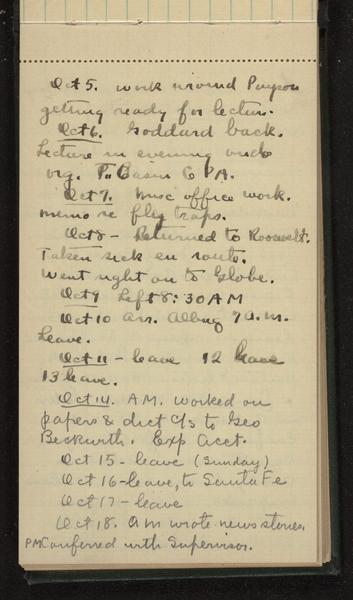 Oct 5. Work around Payson
getting ready for lecture.
Oct 6. Goddard back.
Lecture in evening and
org. P. Basin G P A.
Oct 7. Misc office work.
memo re fly traps.
Oct 8 - Returned to Roosevelt.
Taken sick en route.
Went right on to Globe.
Oct 9 Left 8:30 AM
Oct 10 arr. Albuq 7 a.m.
Leave.
Oct 11 - leave 12 leave
13 leave.
Oct 14. A.M. worked on
papers & dict c/s to Geo
Beckwith. Exp Acct.
Oct 15 - leave (Sunday)
Oct 16 - leave, to Santa Fe
Oct 17 - leave
Oct 18. A m wrote news stories.
PM Conferred with Supervisor.